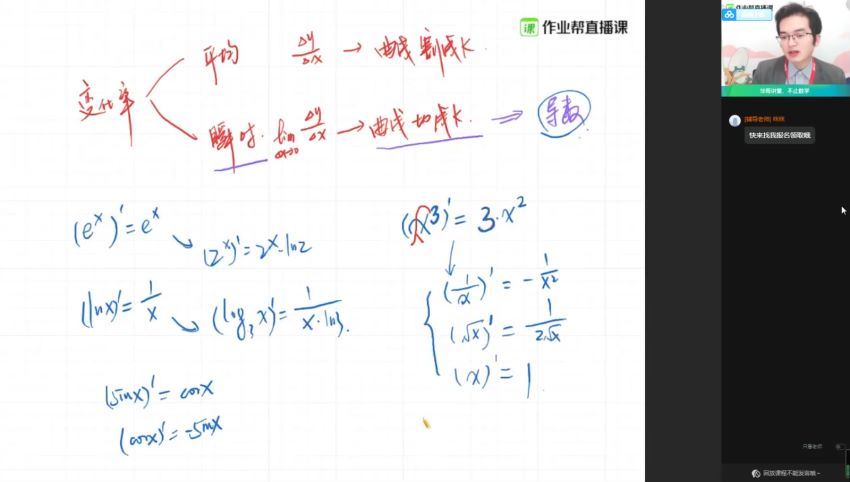 作业帮直播课
变化率
平均 Δy/Δx → 曲线割线K.
瞬时. lim Δx→0 Δy/Δx → 曲线切线K. ⇒ 导数
(e^x)' = e^x
(2^x)' = 2^x·ln2
(lnx)' = 1/x
(log₃x)' = 1/(x·ln3).
(sinx)' = cosx
(cosx)' = -sinx
(x³)' = 3·x²
(1/x)' = -1/x²
(√x)' = 1/(2√x)
(x)' = 1.
[辅导老师] 咪咪
快来找我报名领取哦
只看老师
回放课程不能发言哦~